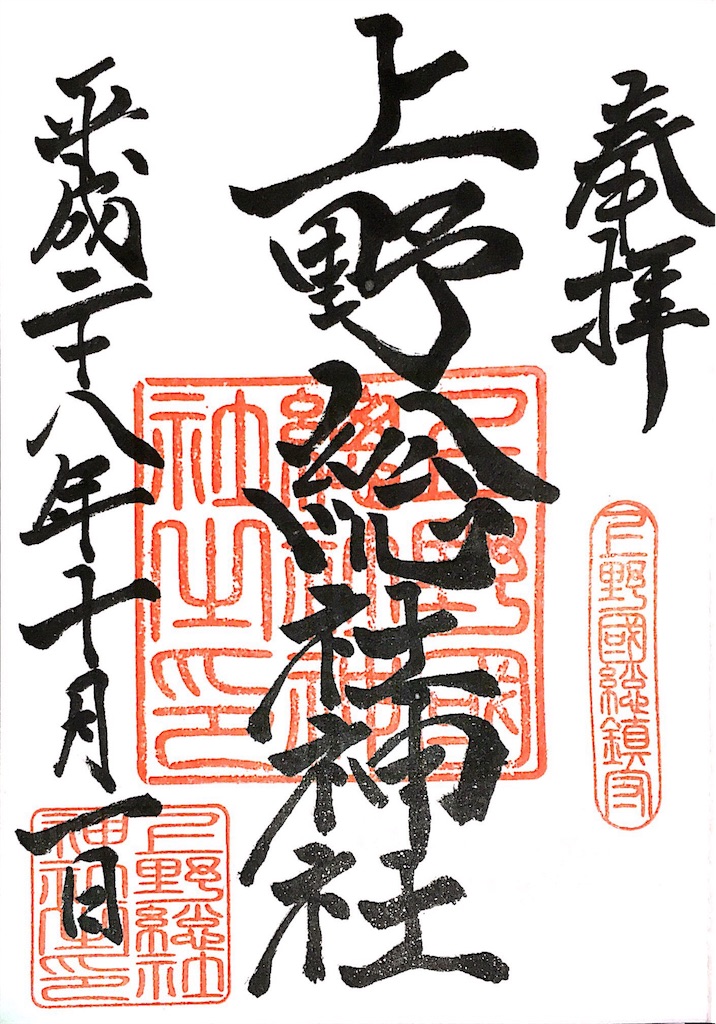 奉拝
上野國総鎮守
上野総社神社
上野國
総社神
社之印
平成二十八年十月一日
上野総社
神社寶印